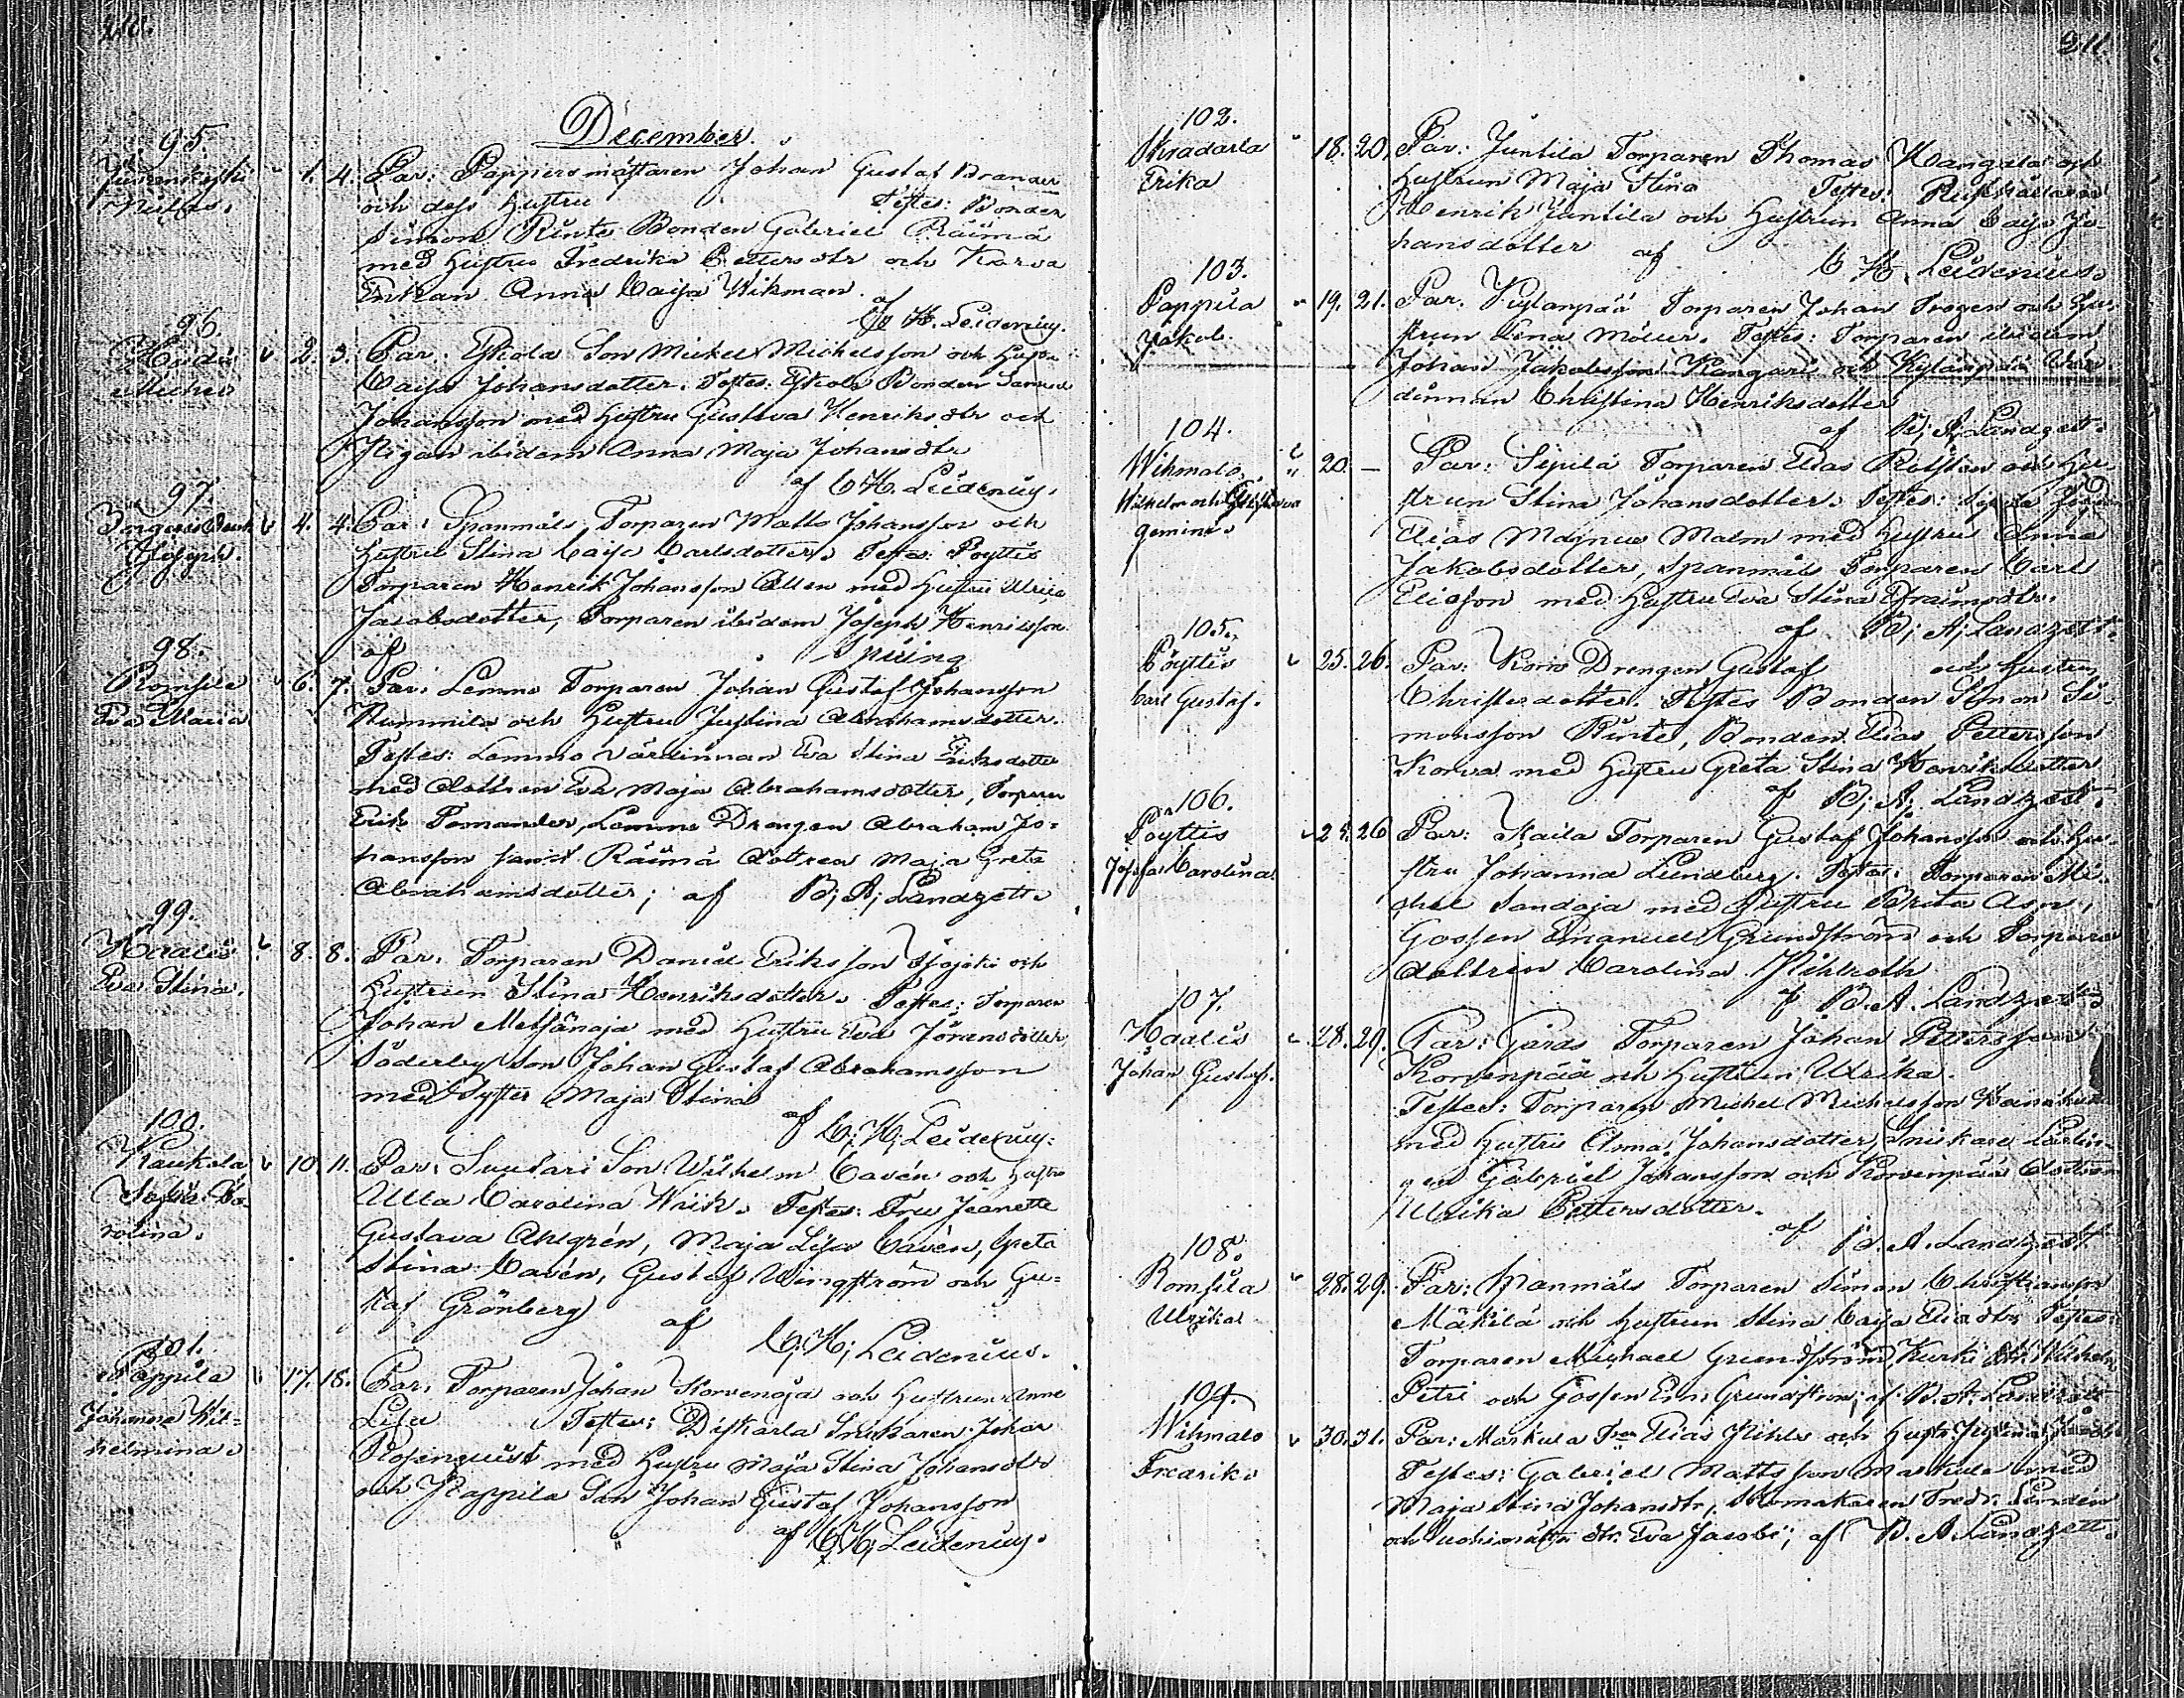 211.
December.
95.
1. 4. Par: Pappersmästaren Johan Gustaf Brander
och dess hustru Testes: Bonden
Simon Rinte Bonden Gabriel Räimä
med hustru Fredrika Pettersdtr och Karva
Enkan Anna Caisa Wikman.
af C H. Leidenius.
96.
Michel
2. 3. Par: Eskola Son Mickel Michelsson och hustru
Caisa Johansdotter. Testes: Eskola Bonden
Johansson med hustru Gustava Henriksdtr och
Pigan ibidem Anna Maja Johansdtr.
af C H. Leidenius.
97.
Joseph.
4. 4. Par: Spanmåls Torparen Matts Johansson och
hustru Stina Caisa Carlsdotter. Testes: Pöyttis
Torparen Henrik Johansson Allen med hustru Ulrica
Jacobsdotter, Torparen ibidem Joseph Henriksson
af Spüing
98.
Romsila
Eva Maria
6. 7. Par: Lemmo Torparen Johan Gustaf Johansson
Nummila och hustru Justina Abrahamsdotter.
Testes: Lemmo Värdinnan Eva Stina Eriksdotter
med dottren Eva Maja Abrahamsdotter, Torparen
Erik Fomander, Lemmo Drengen Abraham Jo=
hansson samt Räimä dottren Maja Greta
Abrahamsdotter; af B; A; Landzett.
99.
Haalis
Eva Stina.
8. 8. Par: Torparen Daniel Eriksson Isojoki och
hustrun Stina Henriksdotter. Testes: Torparen
Johan Metsänoja med hustru Eva Jöransdotter
Söderby son Johan Gustaf Abrahamsson
med Syster Maja Stina
af C; H; Leidenius.
100.
Kaukola
Sofia Ca-
rolina.
10. 11. Par: Suutari Son Wilhelm Cavén och hustru
Ulla Carolina Wiik. Testes: Fru Jeanette
Gustava Ahlgrén, Maja Lisa Cavén, Greta
Stina Cavén, Gustaf Wingström och Gu=
staf Grönberg af
C; H; Leidenius.
101.
Pappila
Johanna Wil=
helmina.
17. 18. Par: Torparen Johan Korvenoja och hustrun Anna
Lisa Testes: Diskarla Snickaren Johan
Rosenquist med hustru Maja Stina Johansdtr
och Pappila Son Johan Gustaf Johansson
af C; H; Leidenius.
102.
Skradarla
Erika
18. 20. Par: Juntila Torparen Thomas Kangala och
hustrun Maja Stina Testes: Rusthållaren
Henrik Juntila och hustrun Anna Caisa Jo-
hansdotter af C H. Leidenius.
103.
Pappila
Jakob.
19. 21. Par. Kylänpää Torparen Johan Trogen och hu-
strun Lena Möller. Testes: Torparen ibidem
Johan Jakobsson Kangari och Kylänpää Vär-
dinnan Christina Henriksdotter
af B; A; Landzett.
104.
Wihmalo,
Wilhelm och
Gemini.
20. — Par: Sipilä Torparen Elias Rolsten och hu-
strun Stina Johansdotter. Testes: Sipilä
Elias Magnus Malm med hustru Anna
Jakobsdotter, Spanmåls Torparen Carl
Eliasson med hustru Eva Stina Efraimsdtr.
af B; A; Landzett.
105.
Pöyttis
Carl Gustaf.
25. 26. Par: Korvo Drengen Gustaf och hustrun
Christersdotter. Testes Bonden Simon Si-
monsson Rinte, Bonden Elias Pettersson
Korva med hustru Greta Stina Henriksdotter
af B; A; Landzett.
106.
Pöyttis
Josefa Carolina
25. 26 Par: Kaila Torparen Gustaf Johansson och hu-
stru Johanna Lundberg. Testes: Torparen Mi-
chel Sandoja med hustru Brita
Gossen Emanuel Grundström och Torpare
dottren Carolina Kihlroth
af B. A. Landzett.
107.
Haalis
Johan Gustaf.
28. 29. Par: Gåras Torparen Johan Pettersson
Korvenpää och hustrun Ulrika.
Testes: Torparen Michel Michelsson
med hustru Anna Johansdotter, Snickare Lärlin-
gen Gabriel Johansson och Korvenpää dottren
Ulrika Pettersdotter.
af B. A. Landzett.
108.
Romsila
Ulrika
28. 29. Par: Spanmåls Torparen Simon Christiansson
Mäkilä och hustrun Stina Caisa Eliædtr Testes:
Torparen Michael Grundström, Kurki Wilhelm
Petri och Gossen Em: Grundström; af B. A. Landzett
109.
Wihmalo
Fredrik.
30. 31. Par: Markula Elias Kihla och hustr:
Testes: Gabriel Mattsson Markula med
Maja Stina Johansdtr, Skomakaren Fredr. Lindén
och dtr. Eva Jacobi; af B. A Landzett.